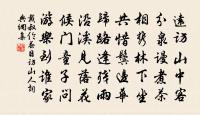 遠訪山中客
分泉謾煮茶
相攜林下坐
共惜鬢邊華
歸路逢殘雨
沿溪見落花
候門童子問
遊樂到誰家
戴叔倫春日訪山人詞